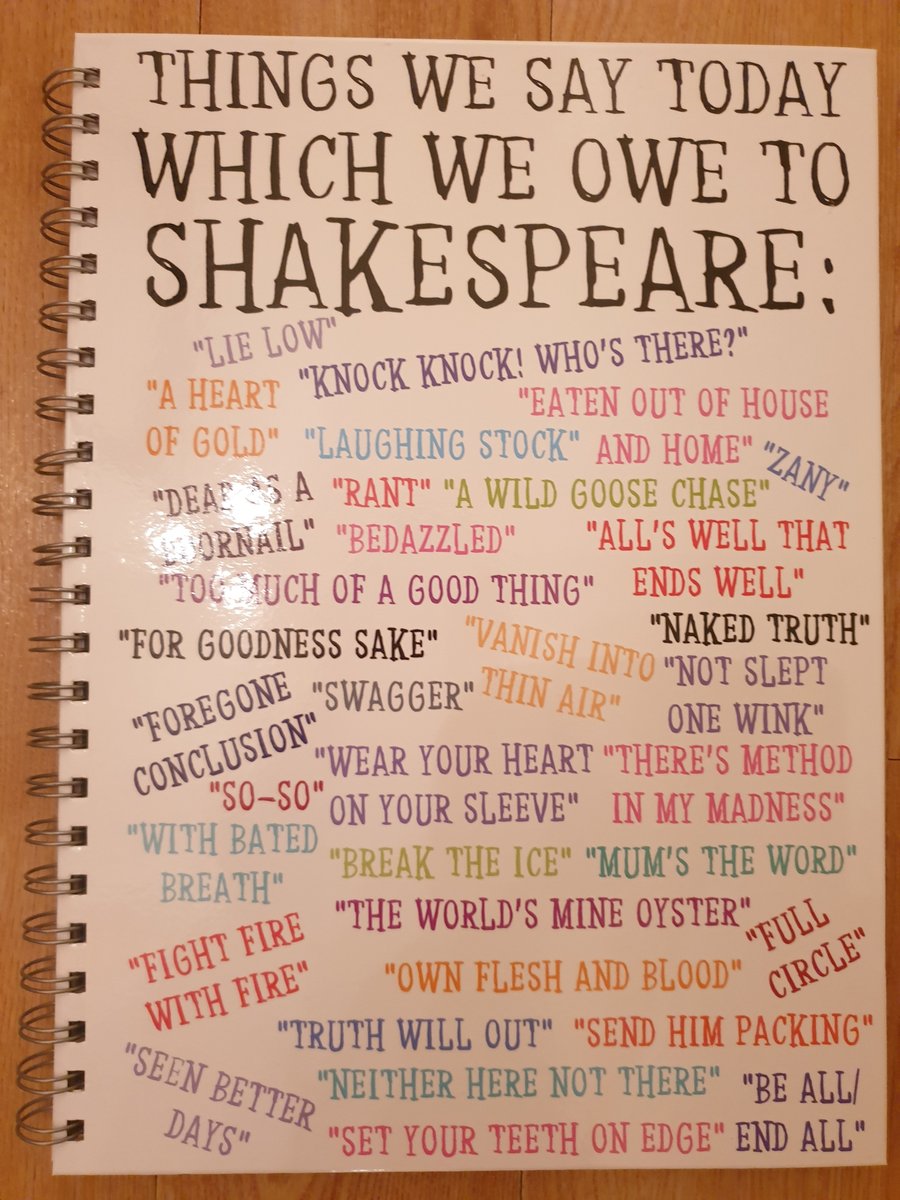 THINGS WE SAY TODAY
WHICH WE OWE TO
SHAKESPEARE:
"LIE LOW"
"KNOCK KNOCK! WHO'S THERE?"
"A HEART
OF GOLD"
"EATEN OUT OF HOUSE
AND HOME"
"LAUGHING STOCK"
"ZANY"
"DEAD AS A
DOORNAIL"
"RANT"
"A WILD GOOSE CHASE"
"BEDAZZLED"
"ALL'S WELL THAT
ENDS WELL"
"TOO MUCH OF A GOOD THING"
"FOR GOODNESS SAKE"
"VANISH INTO
THIN AIR"
"NAKED TRUTH"
"NOT SLEPT
ONE WINK"
"FOREGONE
CONCLUSION"
"SWAGGER"
"SO-SO"
"WEAR YOUR HEART
ON YOUR SLEEVE"
"THERE'S METHOD
IN MY MADNESS"
"WITH BATED
BREATH"
"BREAK THE ICE"
"MUM'S THE WORD"
"THE WORLD'S MINE OYSTER"
"FIGHT FIRE
WITH FIRE"
"OWN FLESH AND BLOOD"
"FULL
CIRCLE"
"TRUTH WILL OUT"
"SEND HIM PACKING"
"SEEN BETTER
DAYS"
"NEITHER HERE NOT THERE"
"BE ALL/
END ALL"
"SET YOUR TEETH ON EDGE"